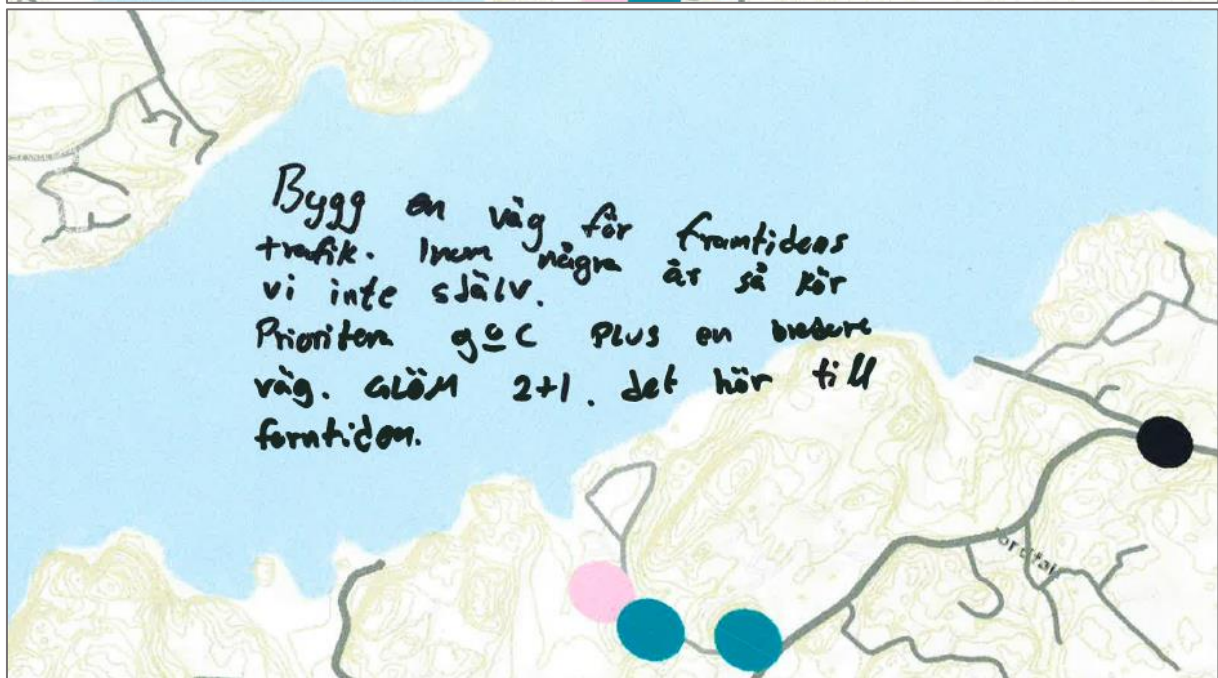 Bygg en väg för framtidens
trafik. Inom några år så kör
vi inte själv.
Prioritera g o c PLUS en bredare
väg. GLÖM 2+1. det hör till
forntiden.